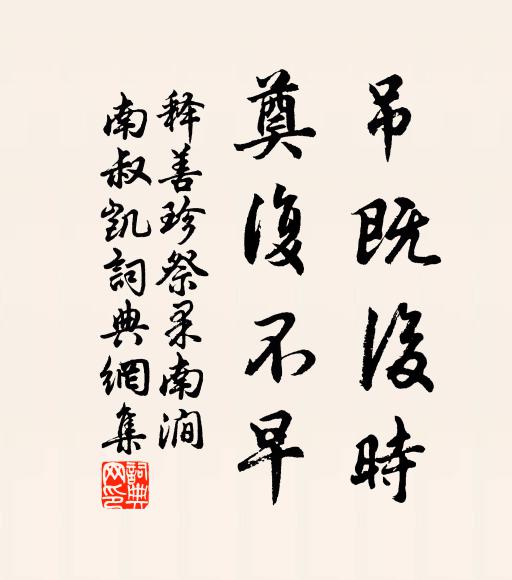 吊既後時
奠復不早
释善珍祭杲南澗
南叔凯詞典網集
詞典网印